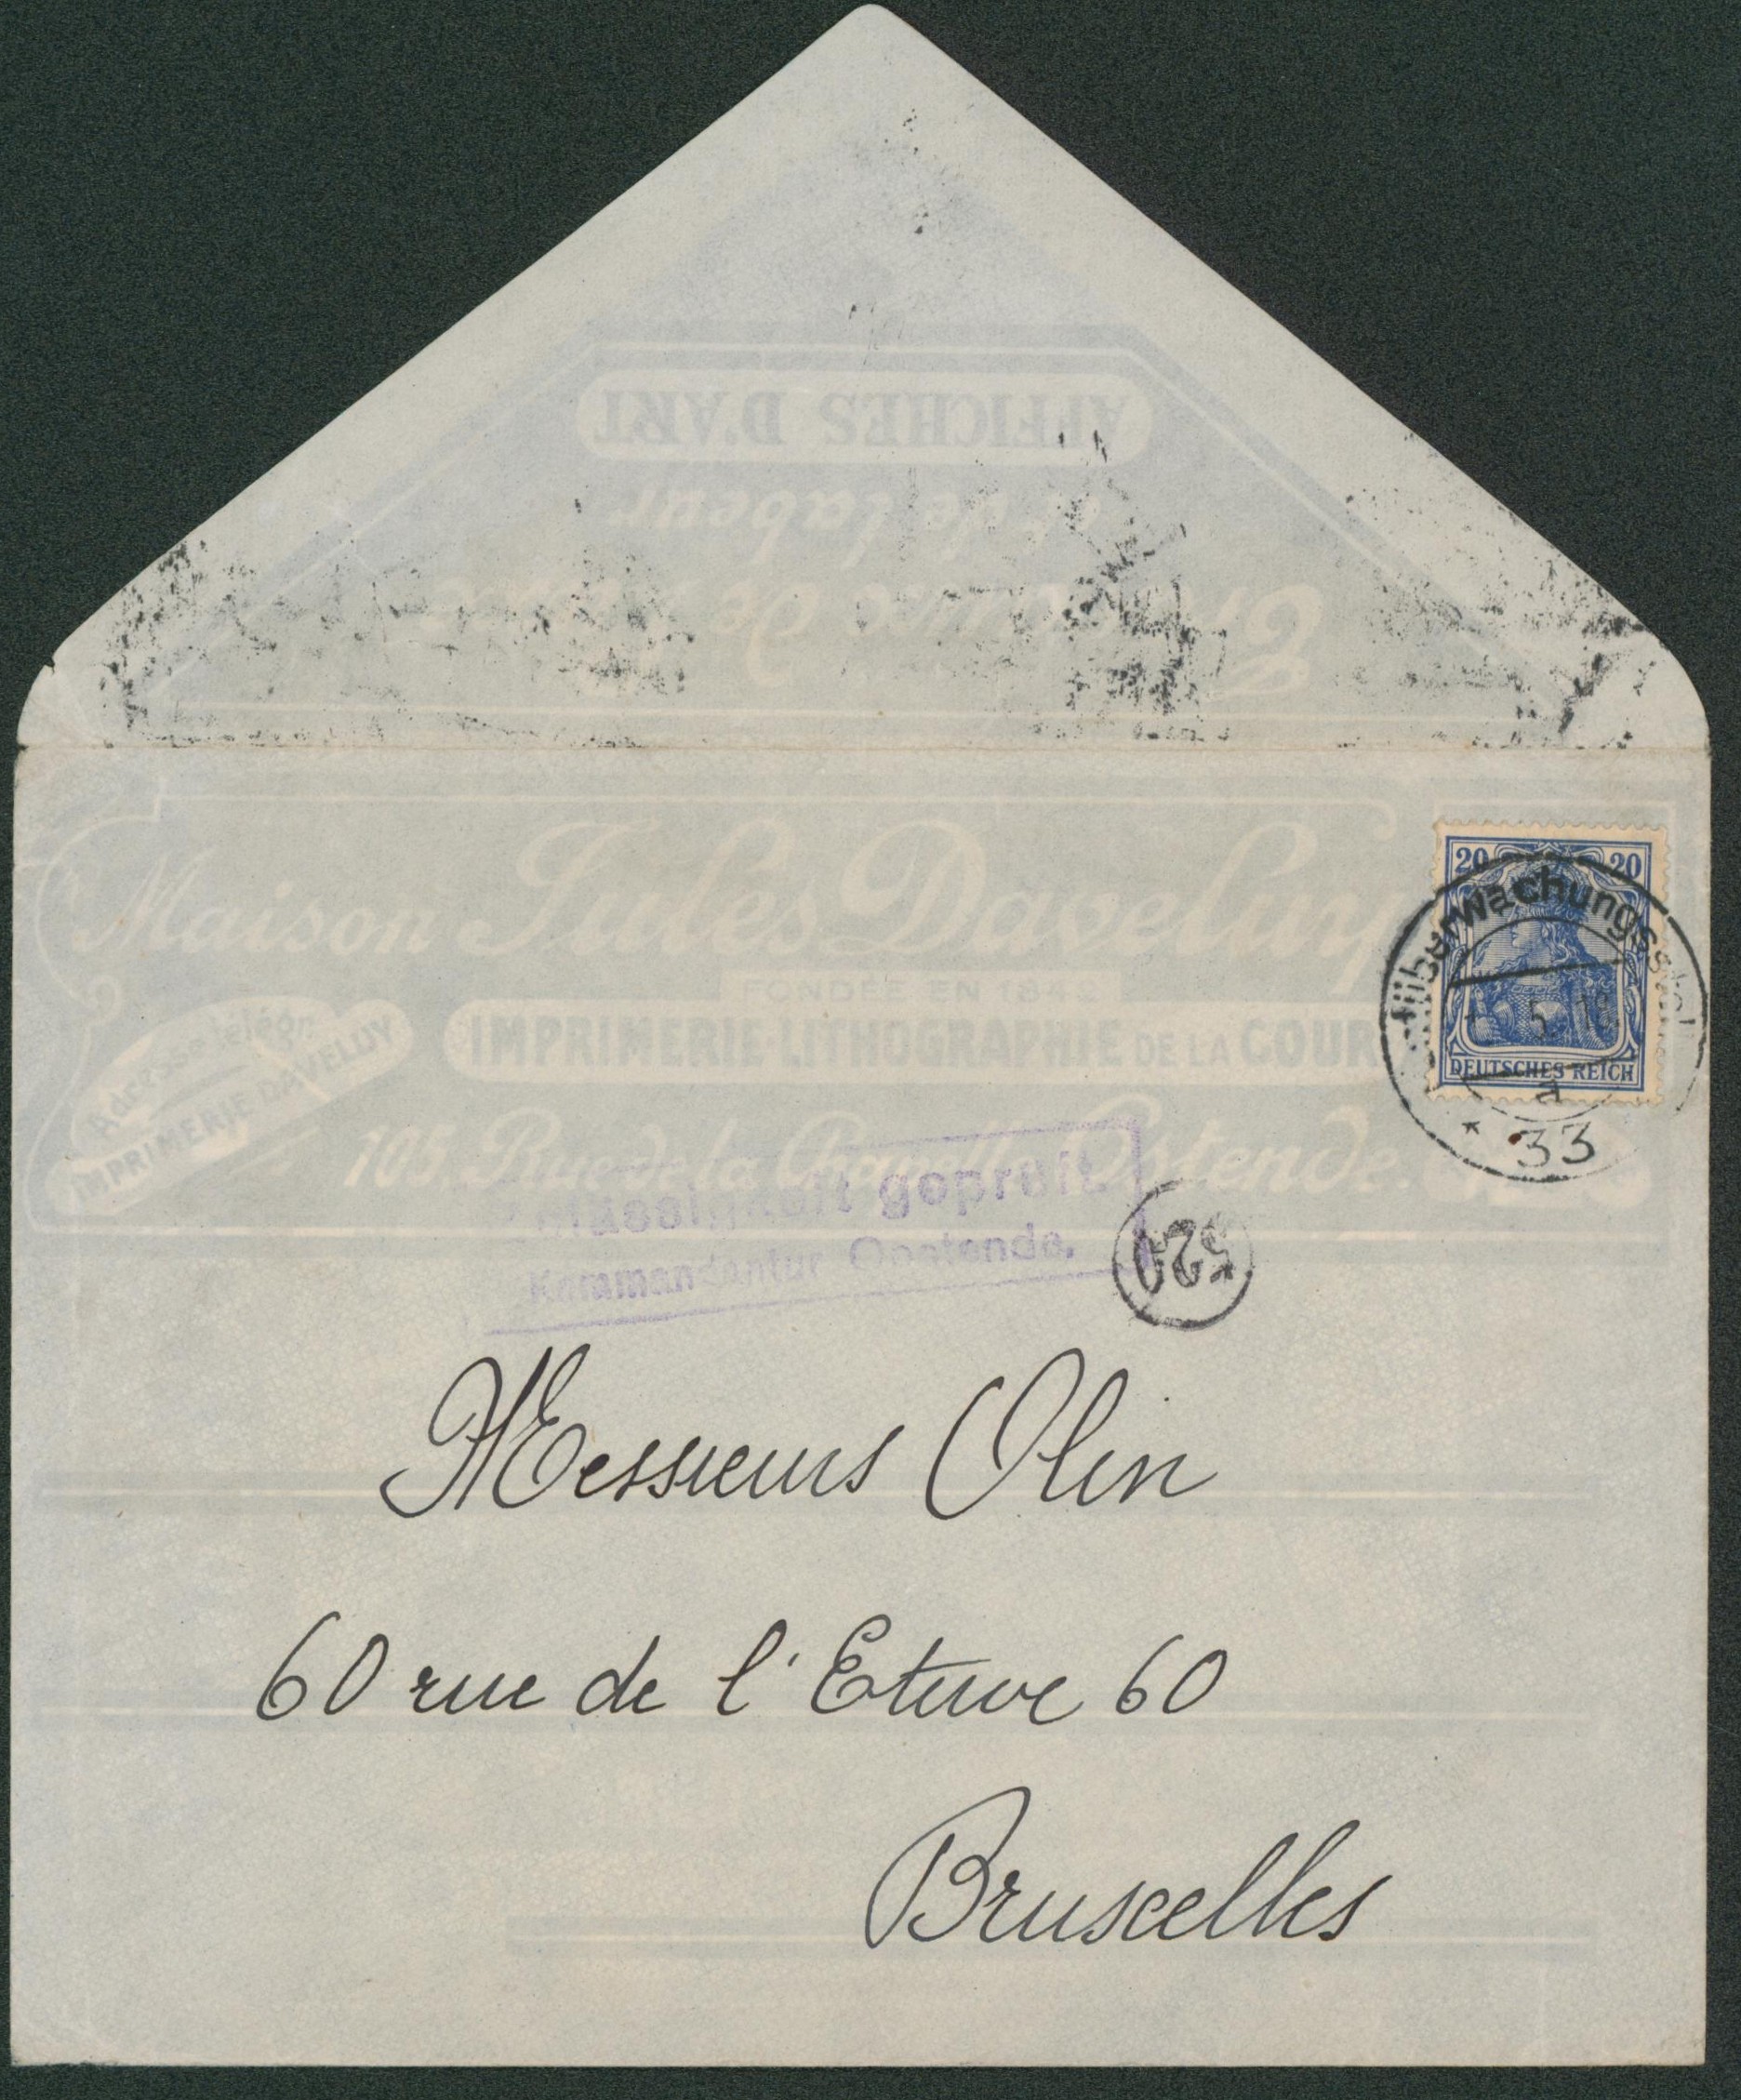 AFFICHES D'ART
et de labeur
de
Maison Jules Daveluy
FONDÉE EN 1842
IMPRIMERIE LITHOGRAPHIE DE LA COUR
Adresse télégr.
IMPRIMERIE DAVELUY
103. Rue de la Chapelle Ostende.
20 20
DEUTSCHES REICH
Überwachungsstelle
5. 18
a
* 33
geprüft
Kommandantur Oostende.
529
Messieurs Olin
60 rue de l'Etuve 60
Bruxelles